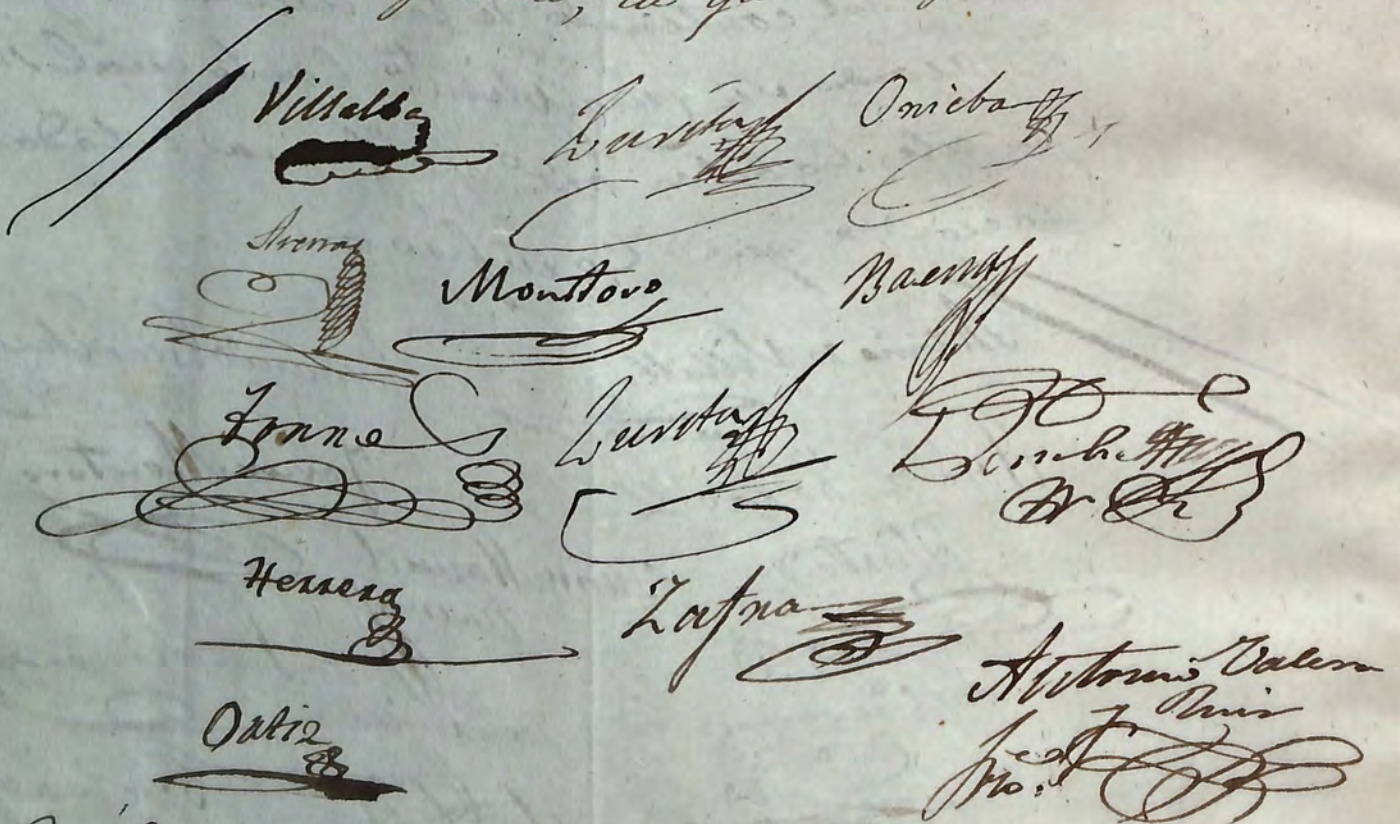 Villalba Zurita Onieba
Arenas Monttoro Baena
Torre Zurita
Herrera Zafra
Antonio Valera
Ortiz y Ruiz
Srio.